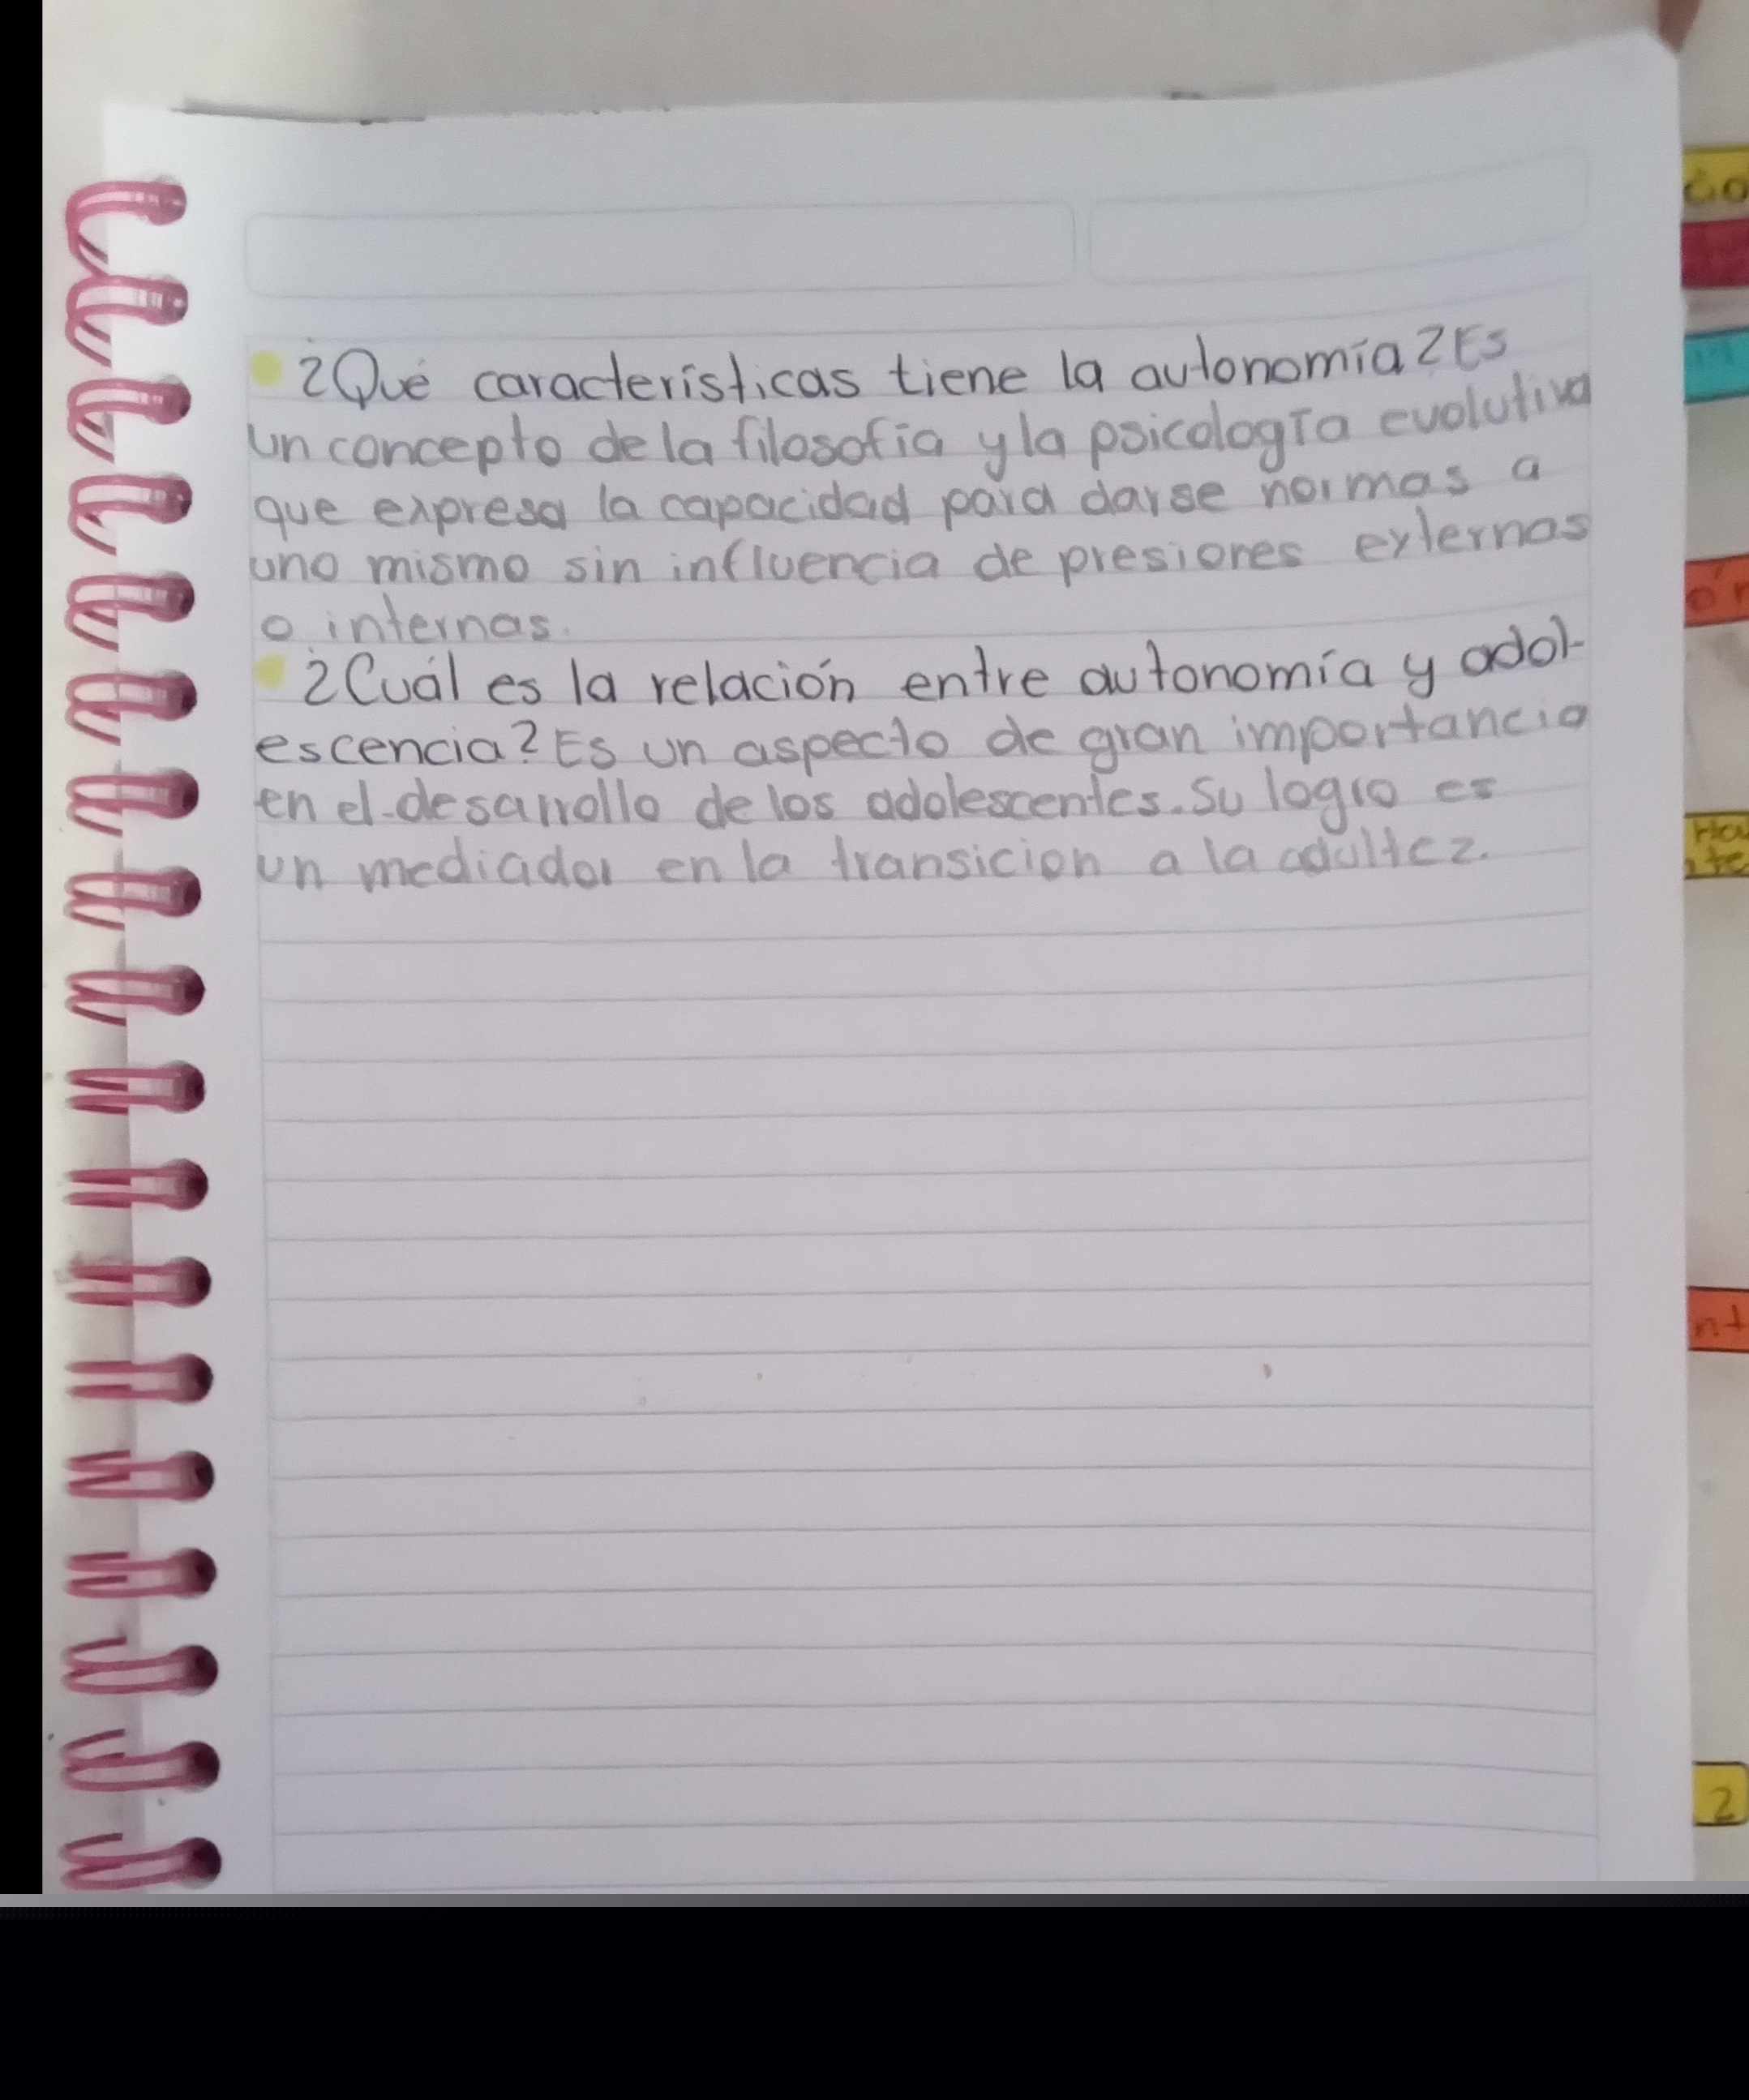 ¿Qué características tiene la autonomía? Es
un concepto de la filosofía y la psicología evolutiva
que expresa la capacidad para darse normas a
uno mismo sin influencia de presiones externas
o internas.
¿Cuál es la relación entre autonomía y adol-
escencia? Es un aspecto de gran importancia
en el desarrollo de los adolescentes. Su logro es
un mediador en la transicion a la adultez.
2